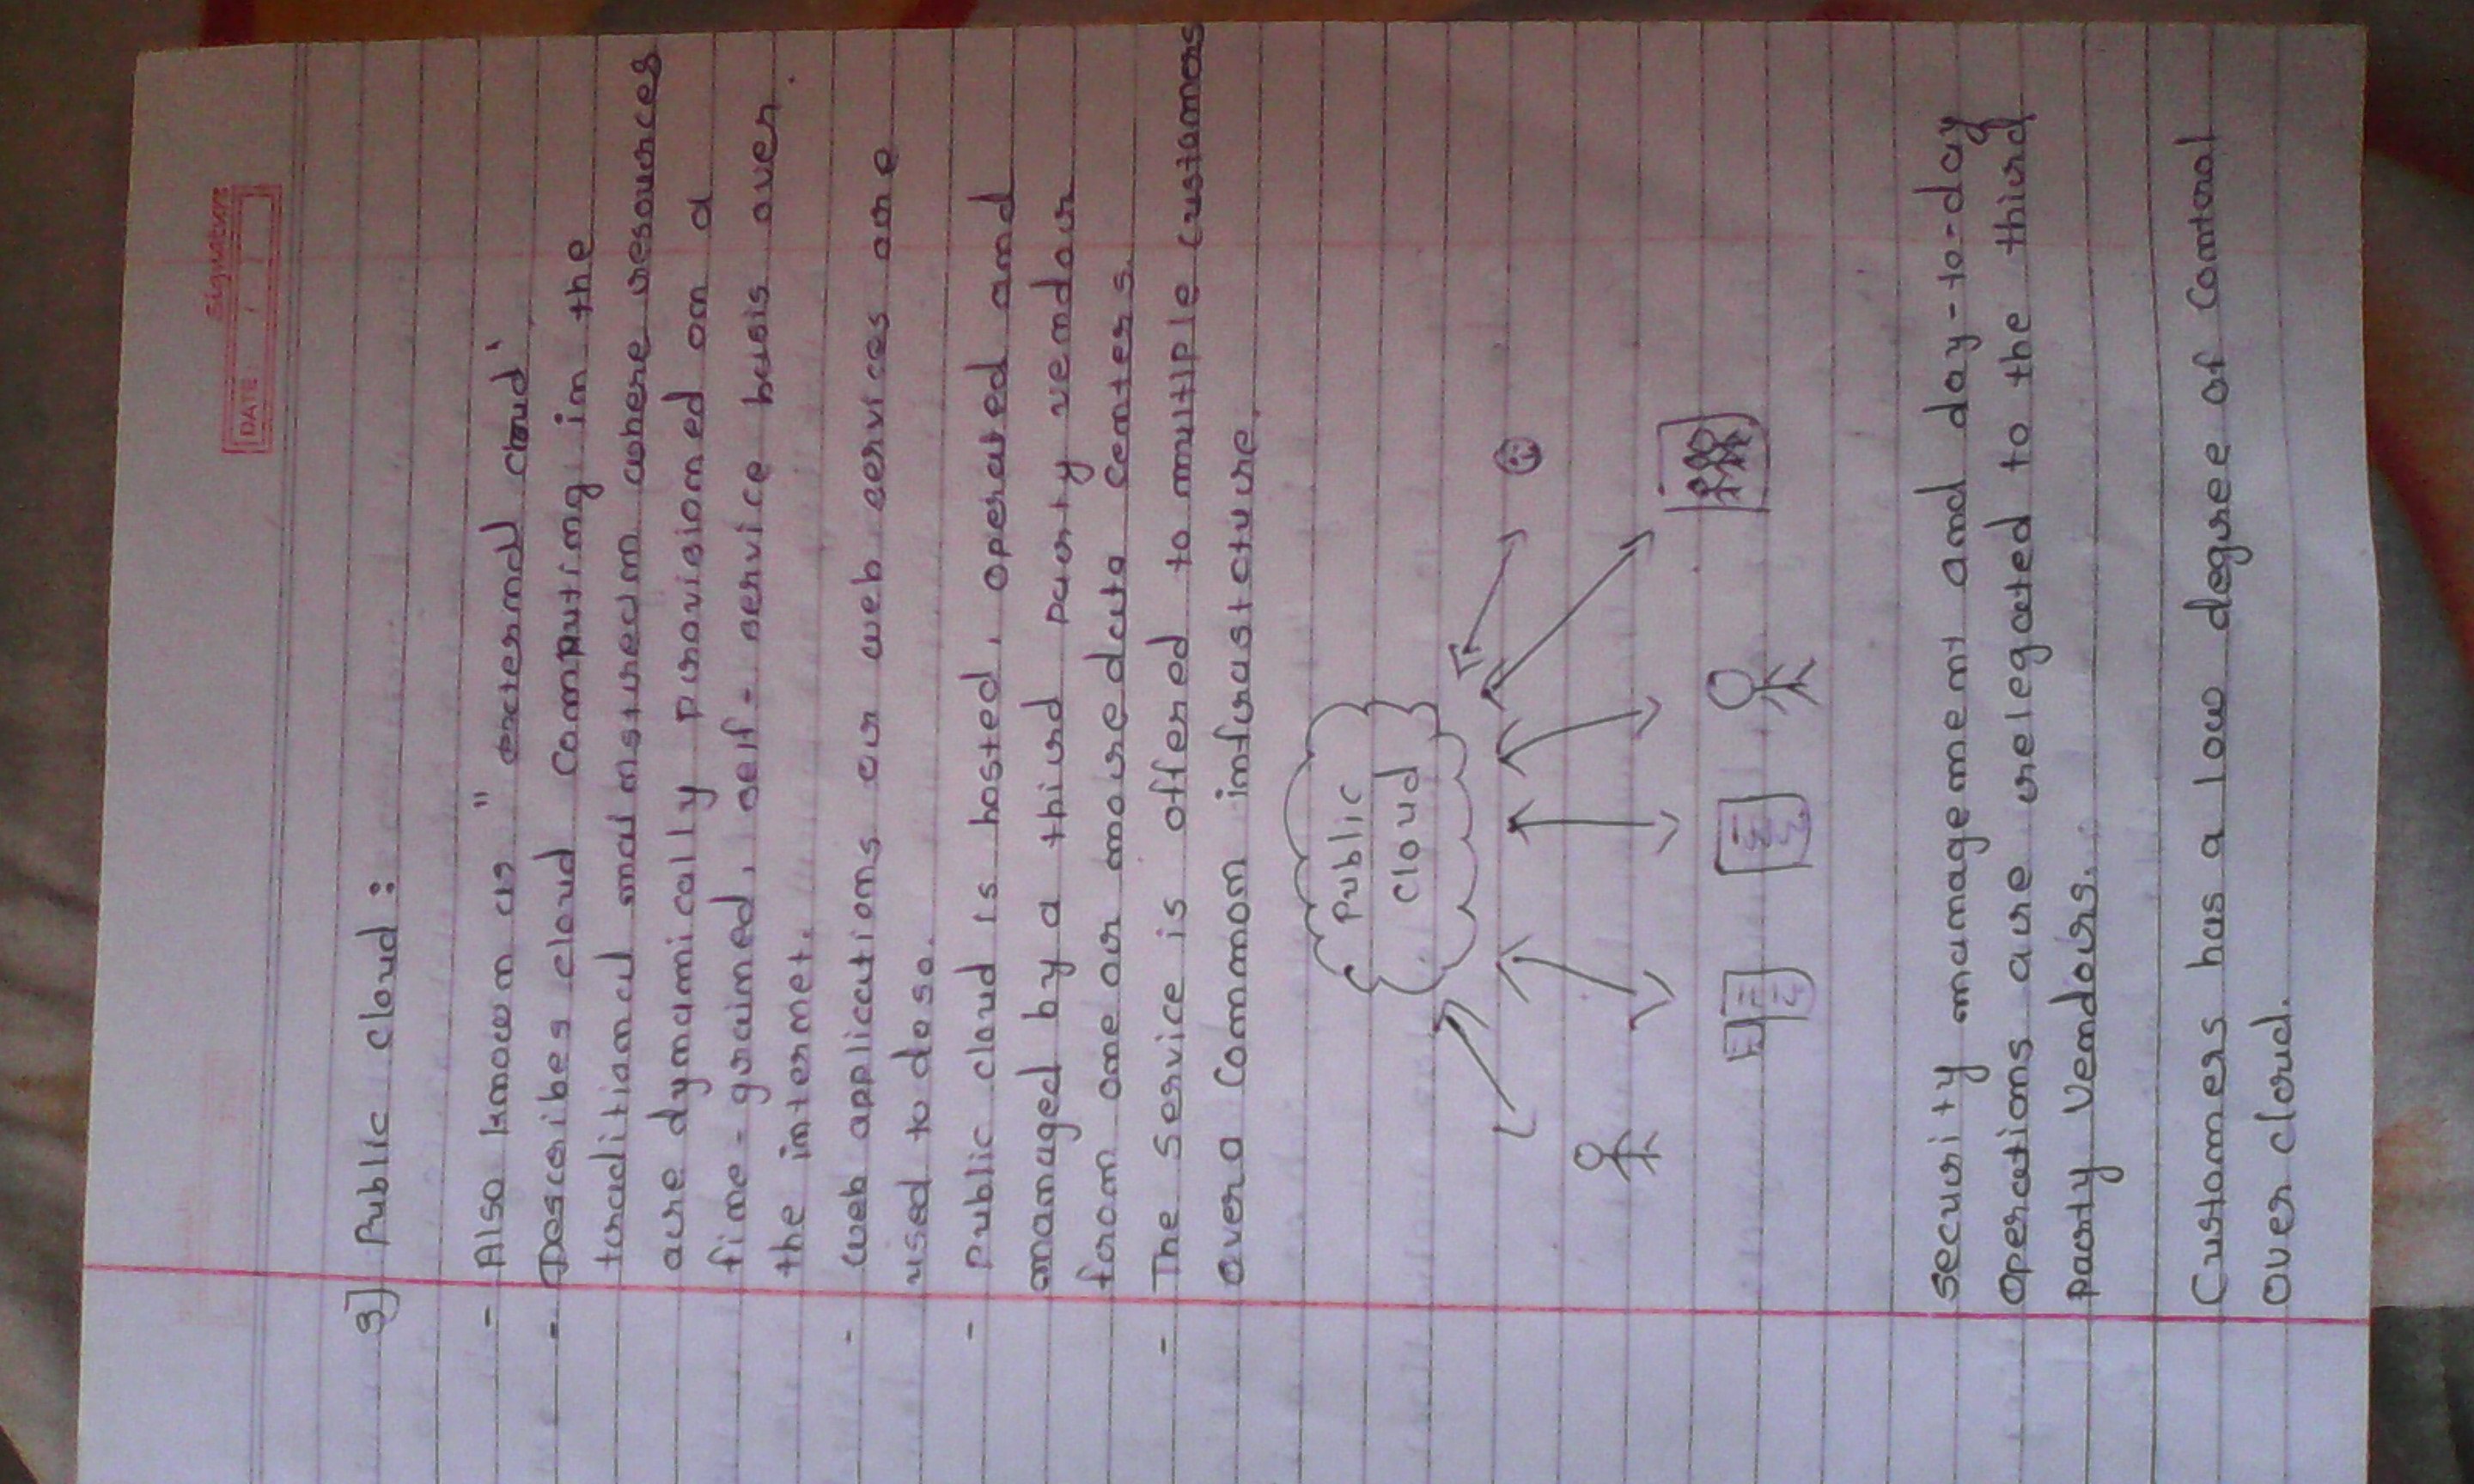 Signature
DATE: / /
3] Public cloud :
- Also known as "external cloud"
- Describes cloud computing in the
traditional mainstream where resources
are dynamically provisioned on a
fine-grained, self-service basis over
the internet.
- web applications or web services are
used to do so.
- Public cloud is hosted, operated and
managed by a third party vendor
from one or more data centers.
- The service is offered to multiple customers
over a common infrastcture.
Public
cloud
security management and day-to-day
operations are relegated to the third
party Vendors.
Customers has a low degree of Control
over cloud.